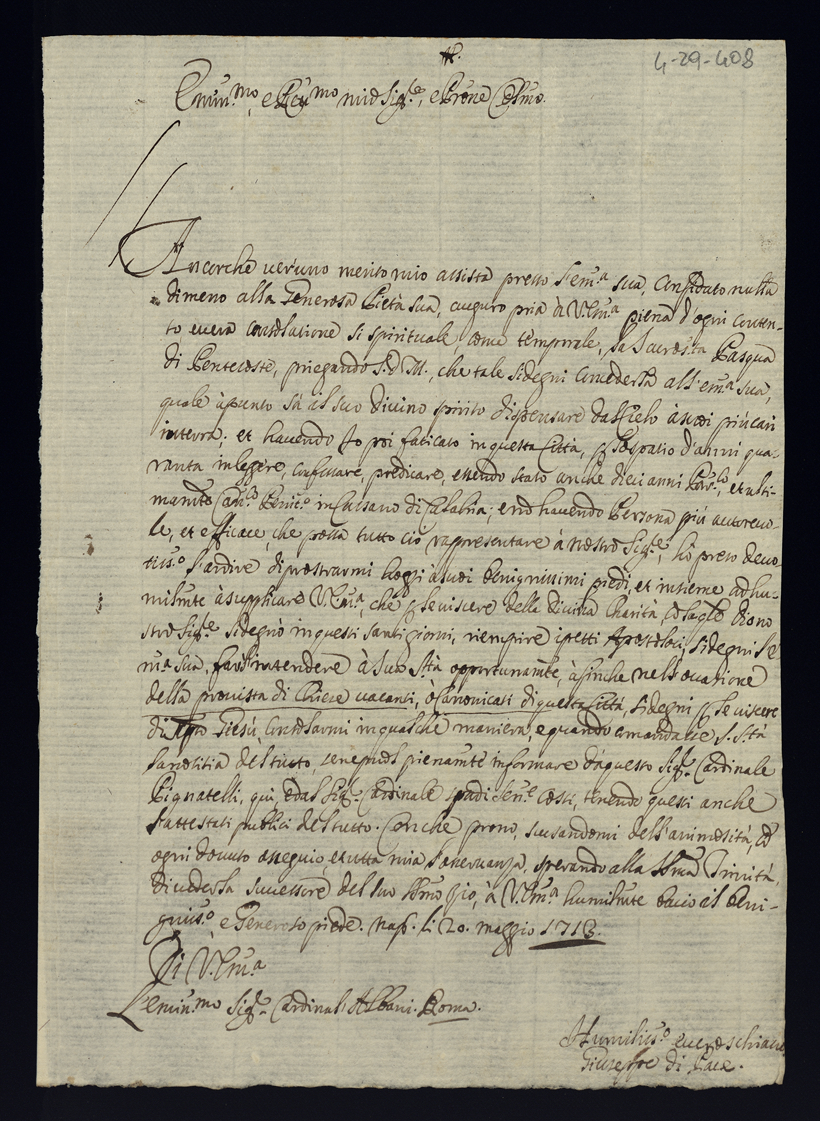 4-29-408
Emin.mo, e Rev.mo mio Sig.re, e Prone Col.mo
Ancorche veruno merito mio assista presso l'em.a sua, Confidato nulla
dimeno alla Generosa Pietà sua, auguro pria à V.Em.a piena d'ogni conten-
to e vera consolatione si spirituale, come temporale, la Pasqua
di Pentecoste, priegando S.D.M., che tale si degni concederla all'em.a sua,
quale àpunto sà il suo divino spirito dispensare dal Cielo à suoi più cari
in terra; et havendo Io poi faticato in questa Città, p lo spatio d'anni qua-
ranta in legere, confessare, predicare, essendo stato anche dieci anni et ulti-
mam.te in Cassano di Calabria; e nò havendo Persona più autorevo-
le, et efficace, che possa tutto ciò rappresentare à nostro Sig.re, hò preso devo-
tiss.o l'ardire di prostrarmi hoggi à suoi benignissimi piedi, et insieme adhu-
milmte à supplicare V.Em.a, che p le viscere della divina Charità,
stro Sig.re si degnò in questi santi giorni, riempire i petti Apostolici, si degni l'e
m.a sua, far intendere à Sua S.tà opportunam.te, àfinche nell'occasione
della provista di Chiese vacanti, ò Canonicati di questa Città, si degni p le viscere
di Giesù, consolarmi in qualche maniera, e quando comandasse S. S.tà
la notitia del tutto, sene può pienam.te informare da questo Sig.r Cardinale
Pignatelli, quì, e dal Sig.r Cardinale costì, tenendo questi anche
l'attestati publici del tutto. Conche prono, scusandomi dell'animosità, cò
ogni dovuto ossequio, e tutta mia osservanza, sperando alla SS.ma Trinità,
di vederla successore del suo zio, à V.Em.a humilm.te bacio il beni-
gniss.o, e Generoso piede. Nap. li 20. maggio 1713.
Di V.Em.a
L'emin.mo Sig.r Cardinal Albani. Roma.
Humiliss.o e vero schiavo
Giuseppe di Pace.